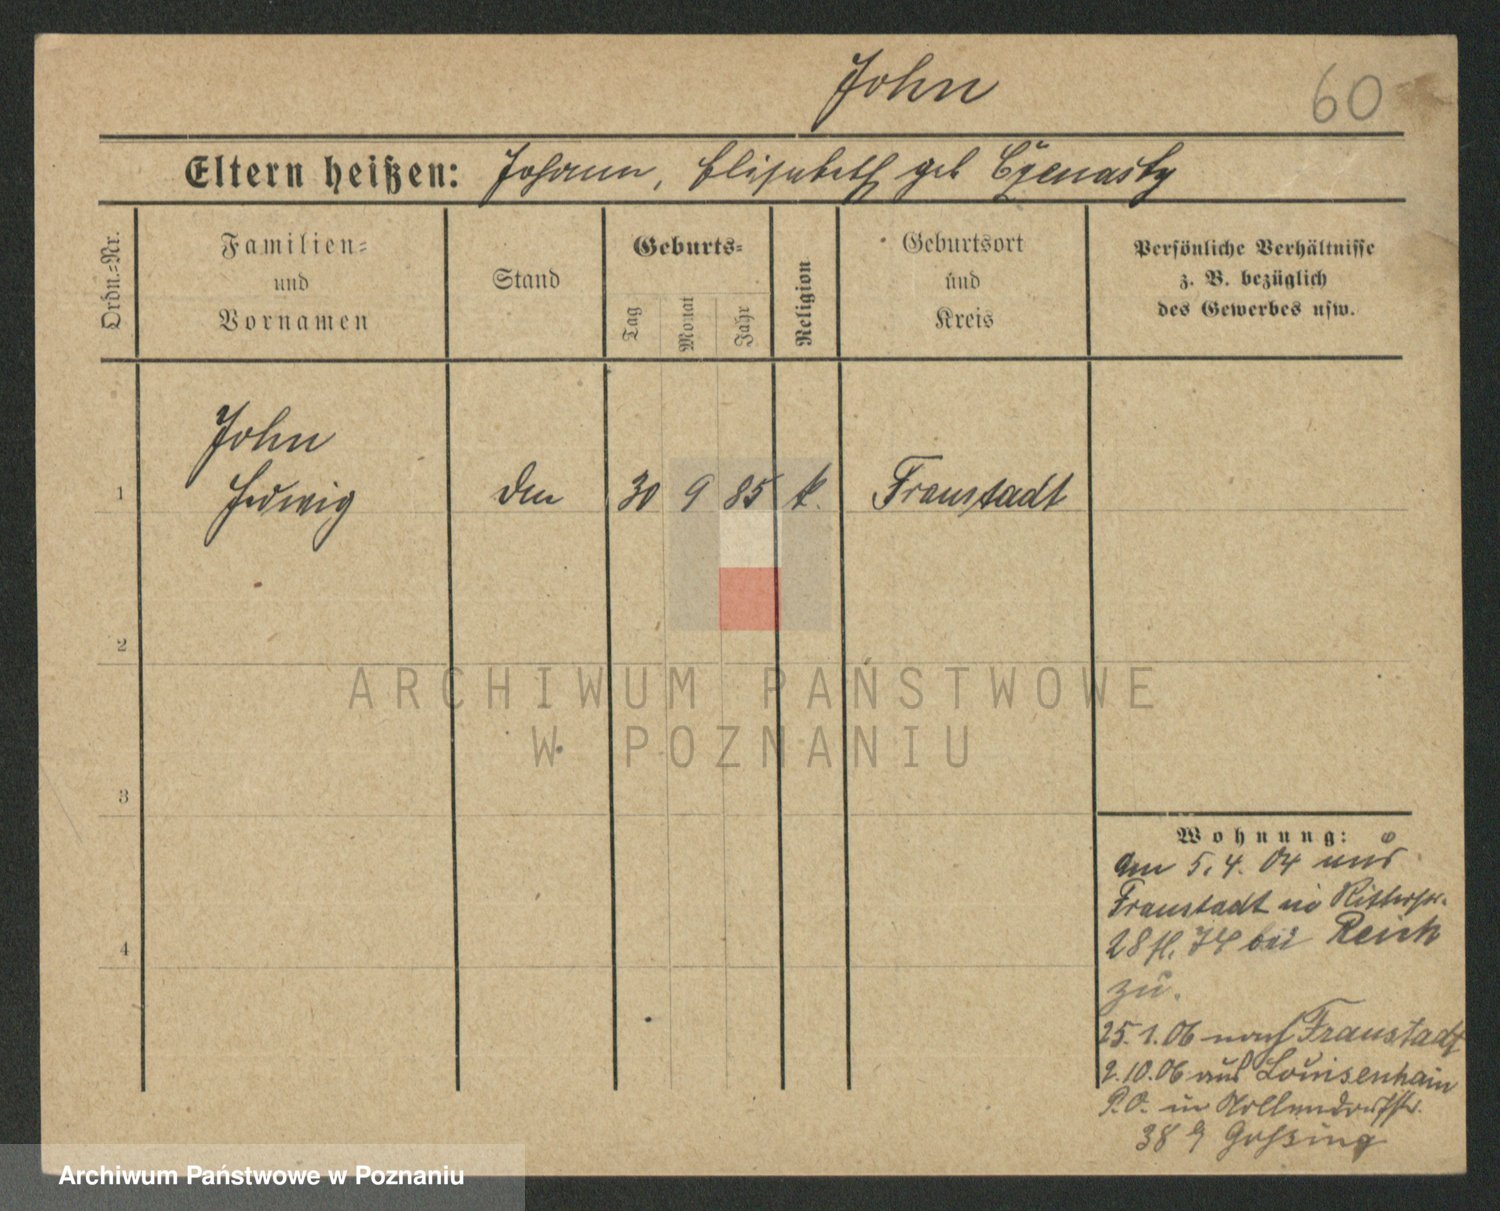 John
60
Eltern heißen: Johann, Elisabeth geb
Ordn.=Nr.
Familien=
und
Vornamen
Stand
Geburts=
Tag
Monat
Jahr
Religion
Geburtsort
und
Kreis
Persönliche Verhältnisse
z. B. bezüglich
des Gewerbes usw.
John
1 Hedwig 30 9 85 k. Fraustadt
2
3
4
Wohnung:
am 5.4.04 aus
Fraustadt in Ritterstr.
28 bei Reich
zu.
25.1.06 nach Fraustadt
2.10.06 aus Louisenhain
P.O. in Nollendorfstr.
38
ARCHIWUM PAŃSTWOWE
W POZNANIU
Archiwum Państwowe w Poznaniu